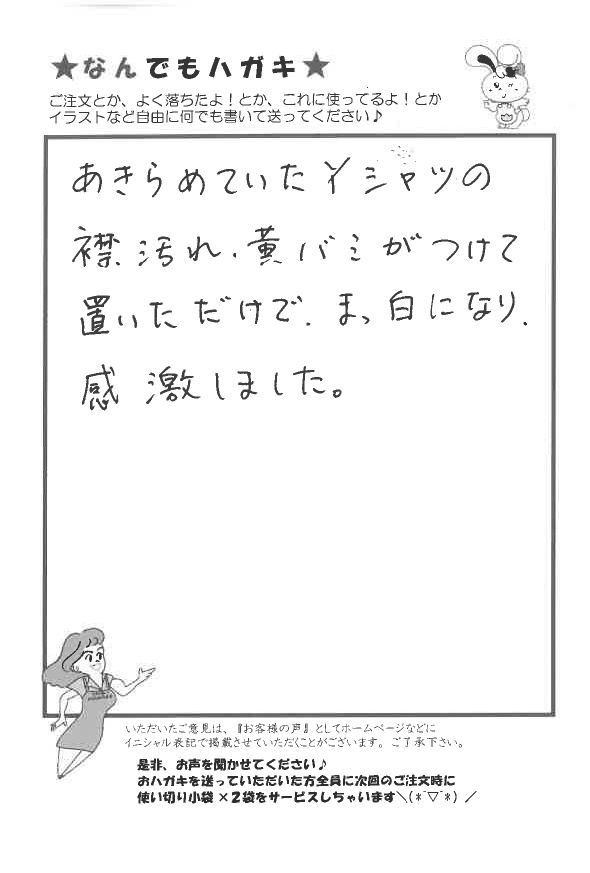 ★なんでもハガキ★
ご注文とか、よく落ちたよ！とか、これに使ってるよ！とか
イラストなど自由に何でも書いて送ってください♪
あきらめていたYシャツの
襟汚れ、黄バミがつけて
置いただけで、まっ白になり、
感激しました。
いただいたご意見は、『お客様の声』としてホームページなどに
イニシャル表記で掲載させていただくことがございます。ご了承下さい。
是非、お声を聞かせてください♪
おハガキを送っていただいた方全員に次回のご注文時に
使い切り小袋×2袋をサービスしちゃいます＼(*ˆ▽ˆ*)／